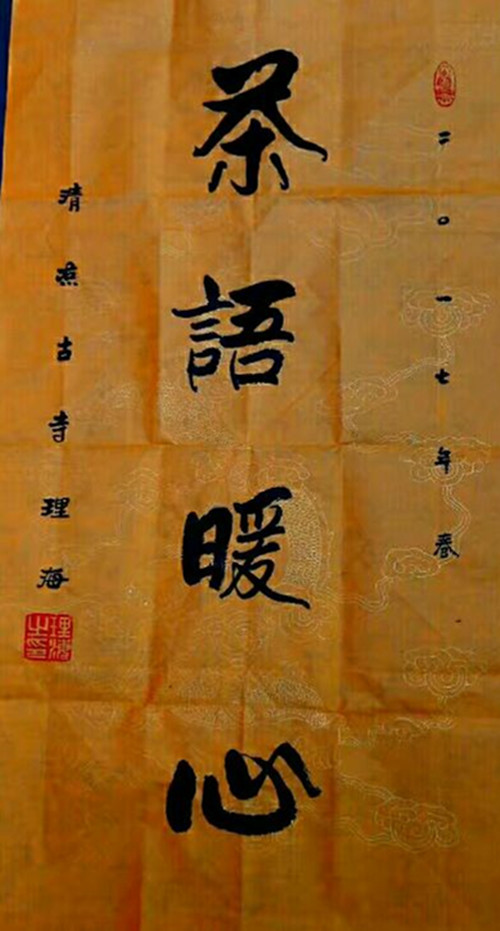 二〇一七年春
茶語暖心
清凉古寺理海
理海之印